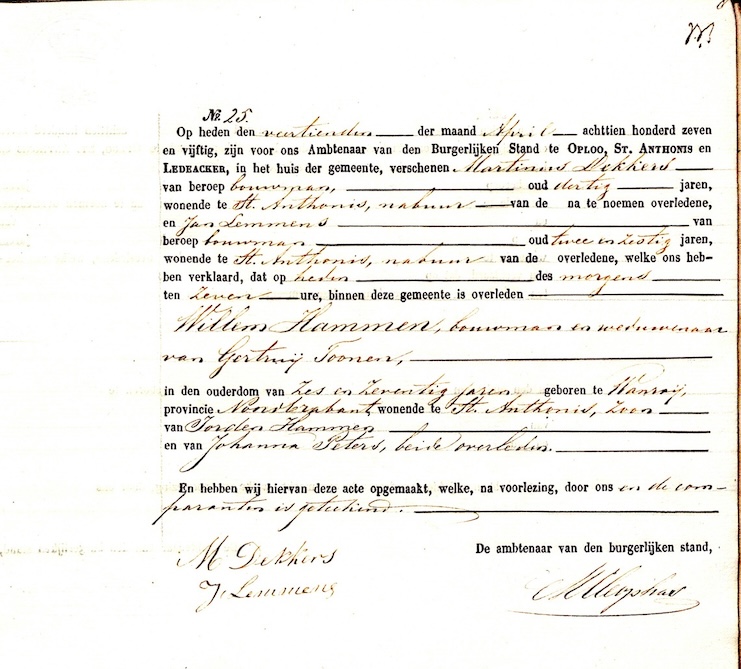 № 25.
Op heden den veertienden der maand April achttien honderd zeven
en vijftig, zijn voor ons Ambtenaar van den Burgerlijken Stand te OPLOO, ST. ANTHONIS en
LEDEACKER, in het huis der gemeente, verschenen Martinus Dekkers
van beroep bouwman, oud dertig jaren,
wonende te St. Anthonis, nabuur van de na te noemen overledene,
en Jan Lemmens van
beroep bouwman oud twee en zestig jaren,
wonende te St. Anthonis, nabuur van de overledene, welke ons heb-
ben verklaard, dat op heden des morgens
ten zeven ure, binnen deze gemeente is overleden
Willem Hammen, bouwman en weduwenaar
van Gertruij Toonen,
in den ouderdom van zes en zeventig jaren, geboren te Wanroij,
provincie Noordbrabant, wonende te St. Anthonis, zoon
van Jorden Hammen
en van Johanna Peters, beide overleden.
En hebben wij hiervan deze acte opgemaakt, welke, na voorlezing, door ons en de com-
paranten is geteekend.
De ambtenaar van den burgerlijken stand,
M Dekkers
J. Lemmens